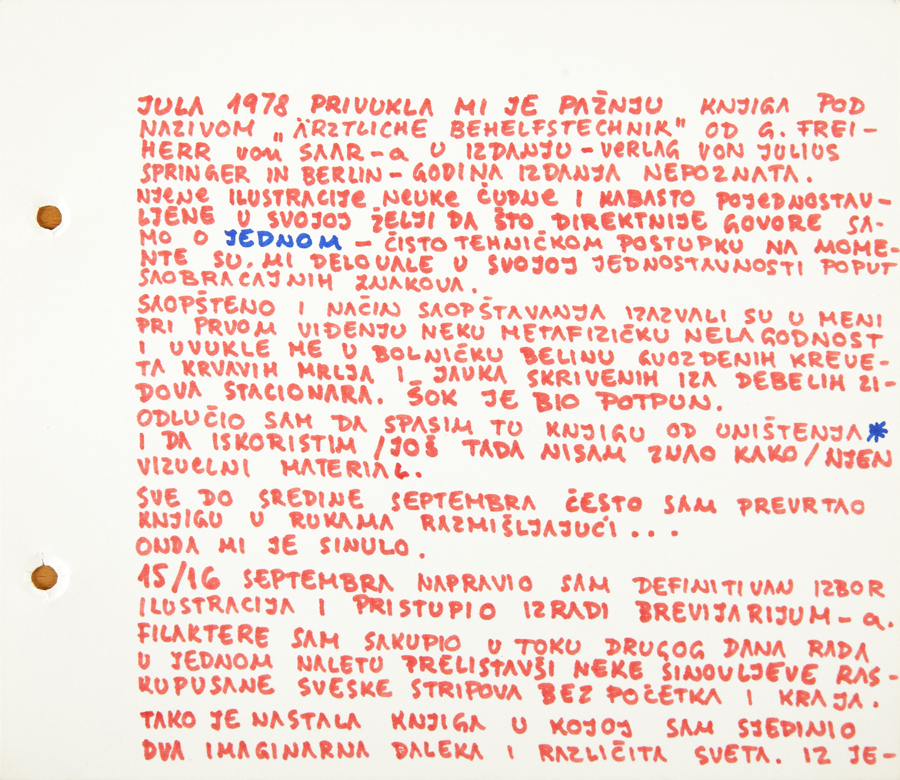 JULA 1978 PRIVUKLA MI JE PAŽNJU KNJIGA POD
NAZIVOM „ÄRZTLICHE BEHELFSTECHNIK" OD G. FREI-
HERR von SAAR-a U IZDANJU - VERLAG VON JULIUS
SPRINGER IN BERLIN - GODINA IZDANJA NEPOZNATA.
NJENE ILUSTRACIJE NEUKE ČUDNE I KABASTO POJEDNOSTAV-
LJENE U SVOJOJ ŽELJI DA ŠTO DIREKTNIJE GOVORE SA-
MO O JEDNOM - ČISTO TEHNIČKOM POSTUPKU NA MOME-
NTE SU MI DELOVALE U SVOJOJ JEDNOSTAVNOSTI POPUT
SAOBRAĆAJNIH ZNAKOVA.
SAOPŠTENO I NAČIN SAOPŠTAVANJA IZAZVALI SU U MENI
PRI PRVOM VIDENJU NEKU METAFIZIČKU NELAGODNOST
I UVUKLE ME U BOLNIČKU BELINU GVOZDENIH KREVE-
TA KRVAVIH MRLJA I JAUKA SKRIVENIH IZA DEBELIH ZI-
DOVA STACIONARA. ŠOK JE BIO POTPUN.
ODLUČIO SAM DA SPASIM TU KNJIGU OD UNIŠTENJA*
I DA ISKORISTIM /JOŠ TADA NISAM ZNAO KAKO/ NJEN
VIZUELNI MATERIAL.
SVE DO SREDINE SEPTEMBRA ČESTO SAM PREVRTAO
KNJIGU U RUKAMA RAZMIŠLJAJUĆI...
ONDA MI JE SINULO.
15/16 SEPTEMBRA NAPRAVIO SAM DEFINITIVAN IZBOR
ILUSTRACIJA I PRISTUPIO IZRADI BREVIJARIJUM-a.
FILAKTERE SAM SAKUPIO U TOKU DRUGOG DANA RADA
U JEDNOM NALETU PRELISTAVŠI NEKE SINOVLJEVE RAS-
KUPUSANE SVESKE STRIPOVA BEZ POČETKA I KRAJA.
TAKO JE NASTALA KNJIGA U KOJOJ SAM SJEDINIO
DVA IMAGINARNA DALEKA I RAZLIČITA SVETA. IZ JE-